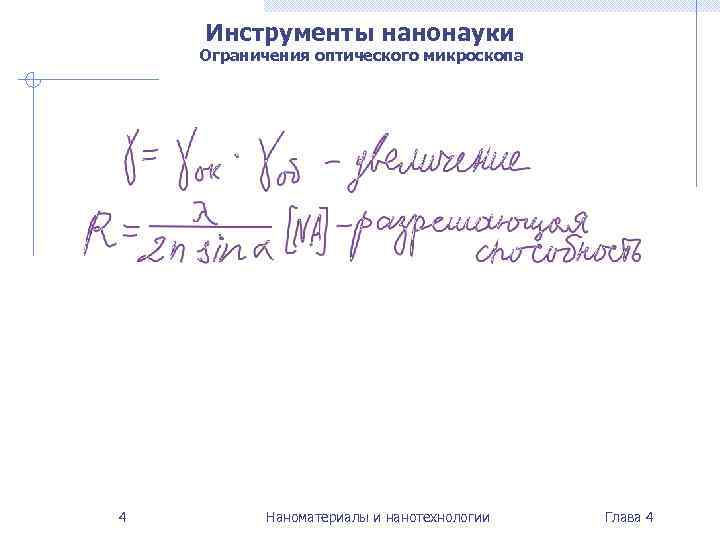 Инструменты нанонауки
Ограничения оптического микроскопа
γ = γок · γоб – увеличение
R = λ / 2n sin α [NA] – разрешающая
способность
4 Наноматериалы и нанотехнологии Глава 4